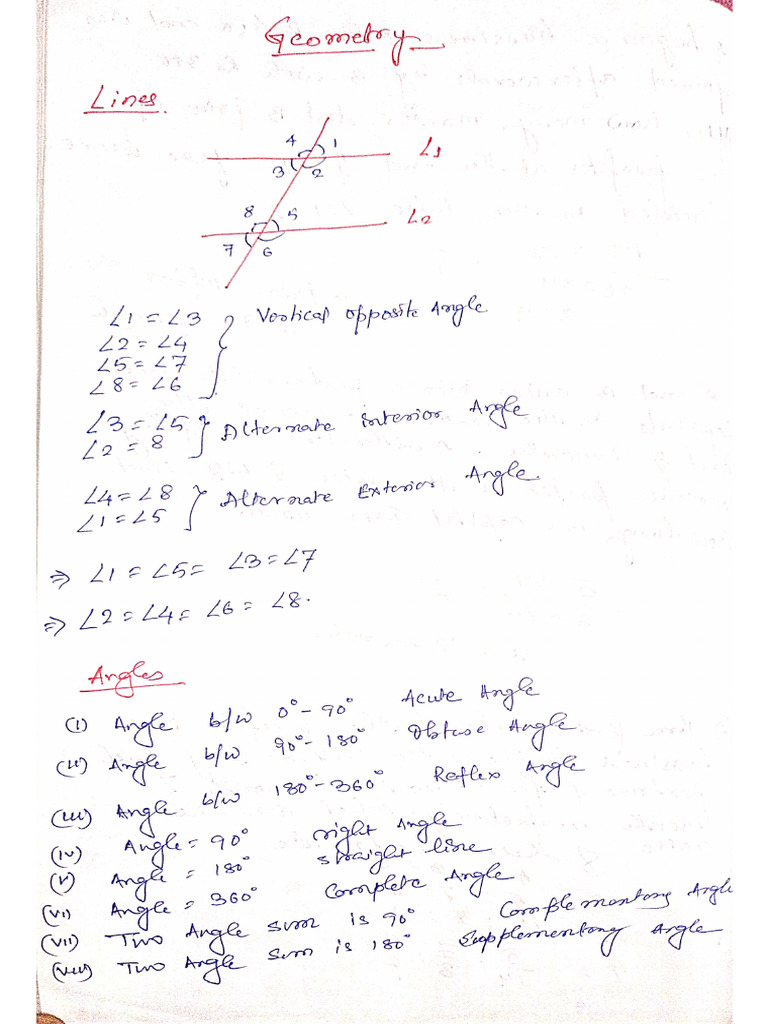 Geometry
Lines
4 1
3 2
L1
8 5
7 6
L2
∠1 = ∠3 } Vertical opposite Angle
∠2 = ∠4
∠5 = ∠7
∠8 = ∠6
∠3 = ∠5 } Alternate interior Angle
∠2 = 8
∠4 = ∠8 } Alternate Exterior Angle
∠1 = ∠5
⇒ ∠1 = ∠5 = ∠3 = ∠7
⇒ ∠2 = ∠4 = ∠6 = ∠8.
Angles
(i) Angle b/w 0° - 90° Acute Angle
(ii) Angle b/w 90° - 180° Obtuse Angle
(iii) Angle b/w 180° - 360° Reflex Angle
(iv) Angle = 90° right Angle
(v) Angle = 180° straight line
(vi) Angle = 360° Complete Angle
(vii) Two Angle sum is 90° Complementary Angle
(viii) Two Angle sum is 180° Supplementary Angle